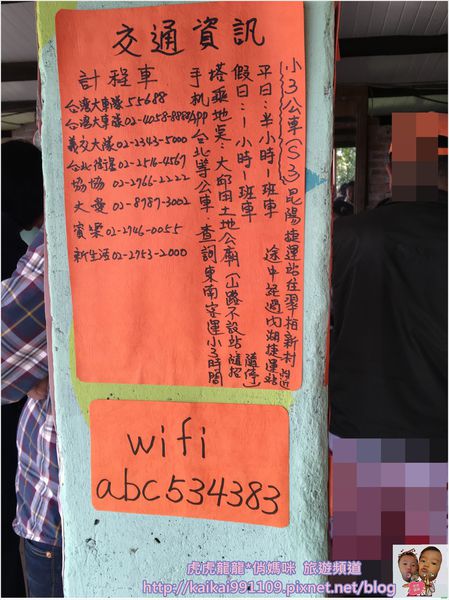 交通資訊
小3公車(S3)昆陽捷運站往翠柏新村附近
途中經過內湖捷運站
平日:半小時一班車
假日:一小時一班車
搭乘地點:大邱田土地公廟(山路不設站隨招隨停)
手机APP台北等公車,查詢東南客運小3時間
計程車
台灣大車隊55688
台灣大車隊02-4058-8888
義交大隊02-2343-5000
台北衛星02-2514-4567
協協 02-2766-2222
大愛02-8787-3002
賓樂02-2746-0055
新生活02-2753-2000
wifi
abc534383
虎虎龍龍*俏媽咪 旅遊頻道
http://kaikai991109.pixnet.net/blog